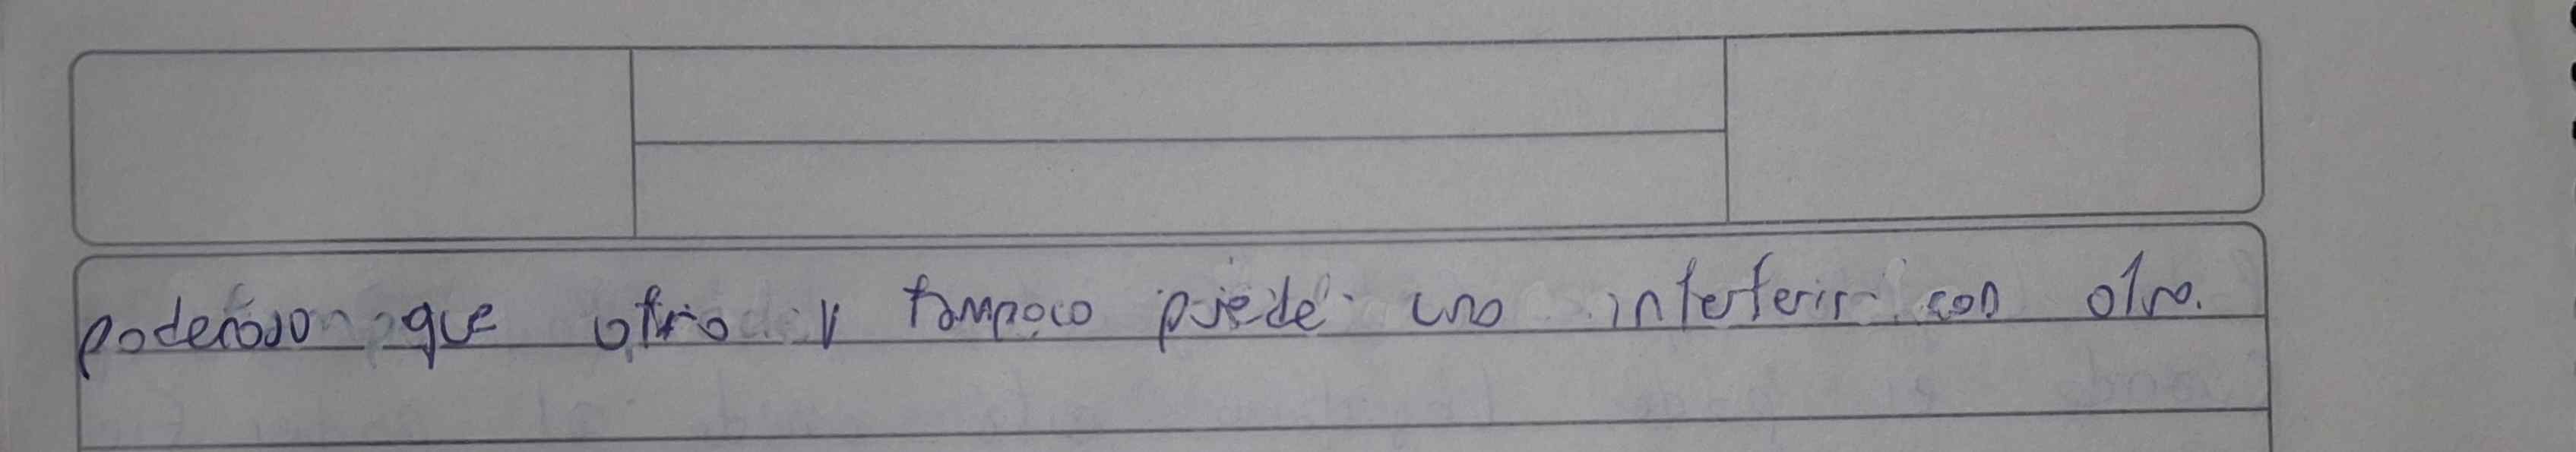 poderoso que otro y tampoco puede uno interferir con otro.